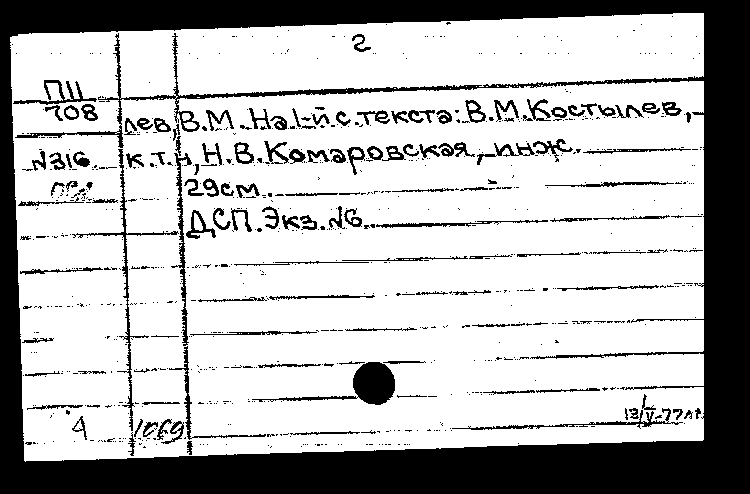 2
П11
708
лев, В.М. На 1-й с. текста: В.М. Костылев,
№316. к.т.н, Н.В. Комаровская, инж.
29см.
ДСП. Экз. №6.
4 1069